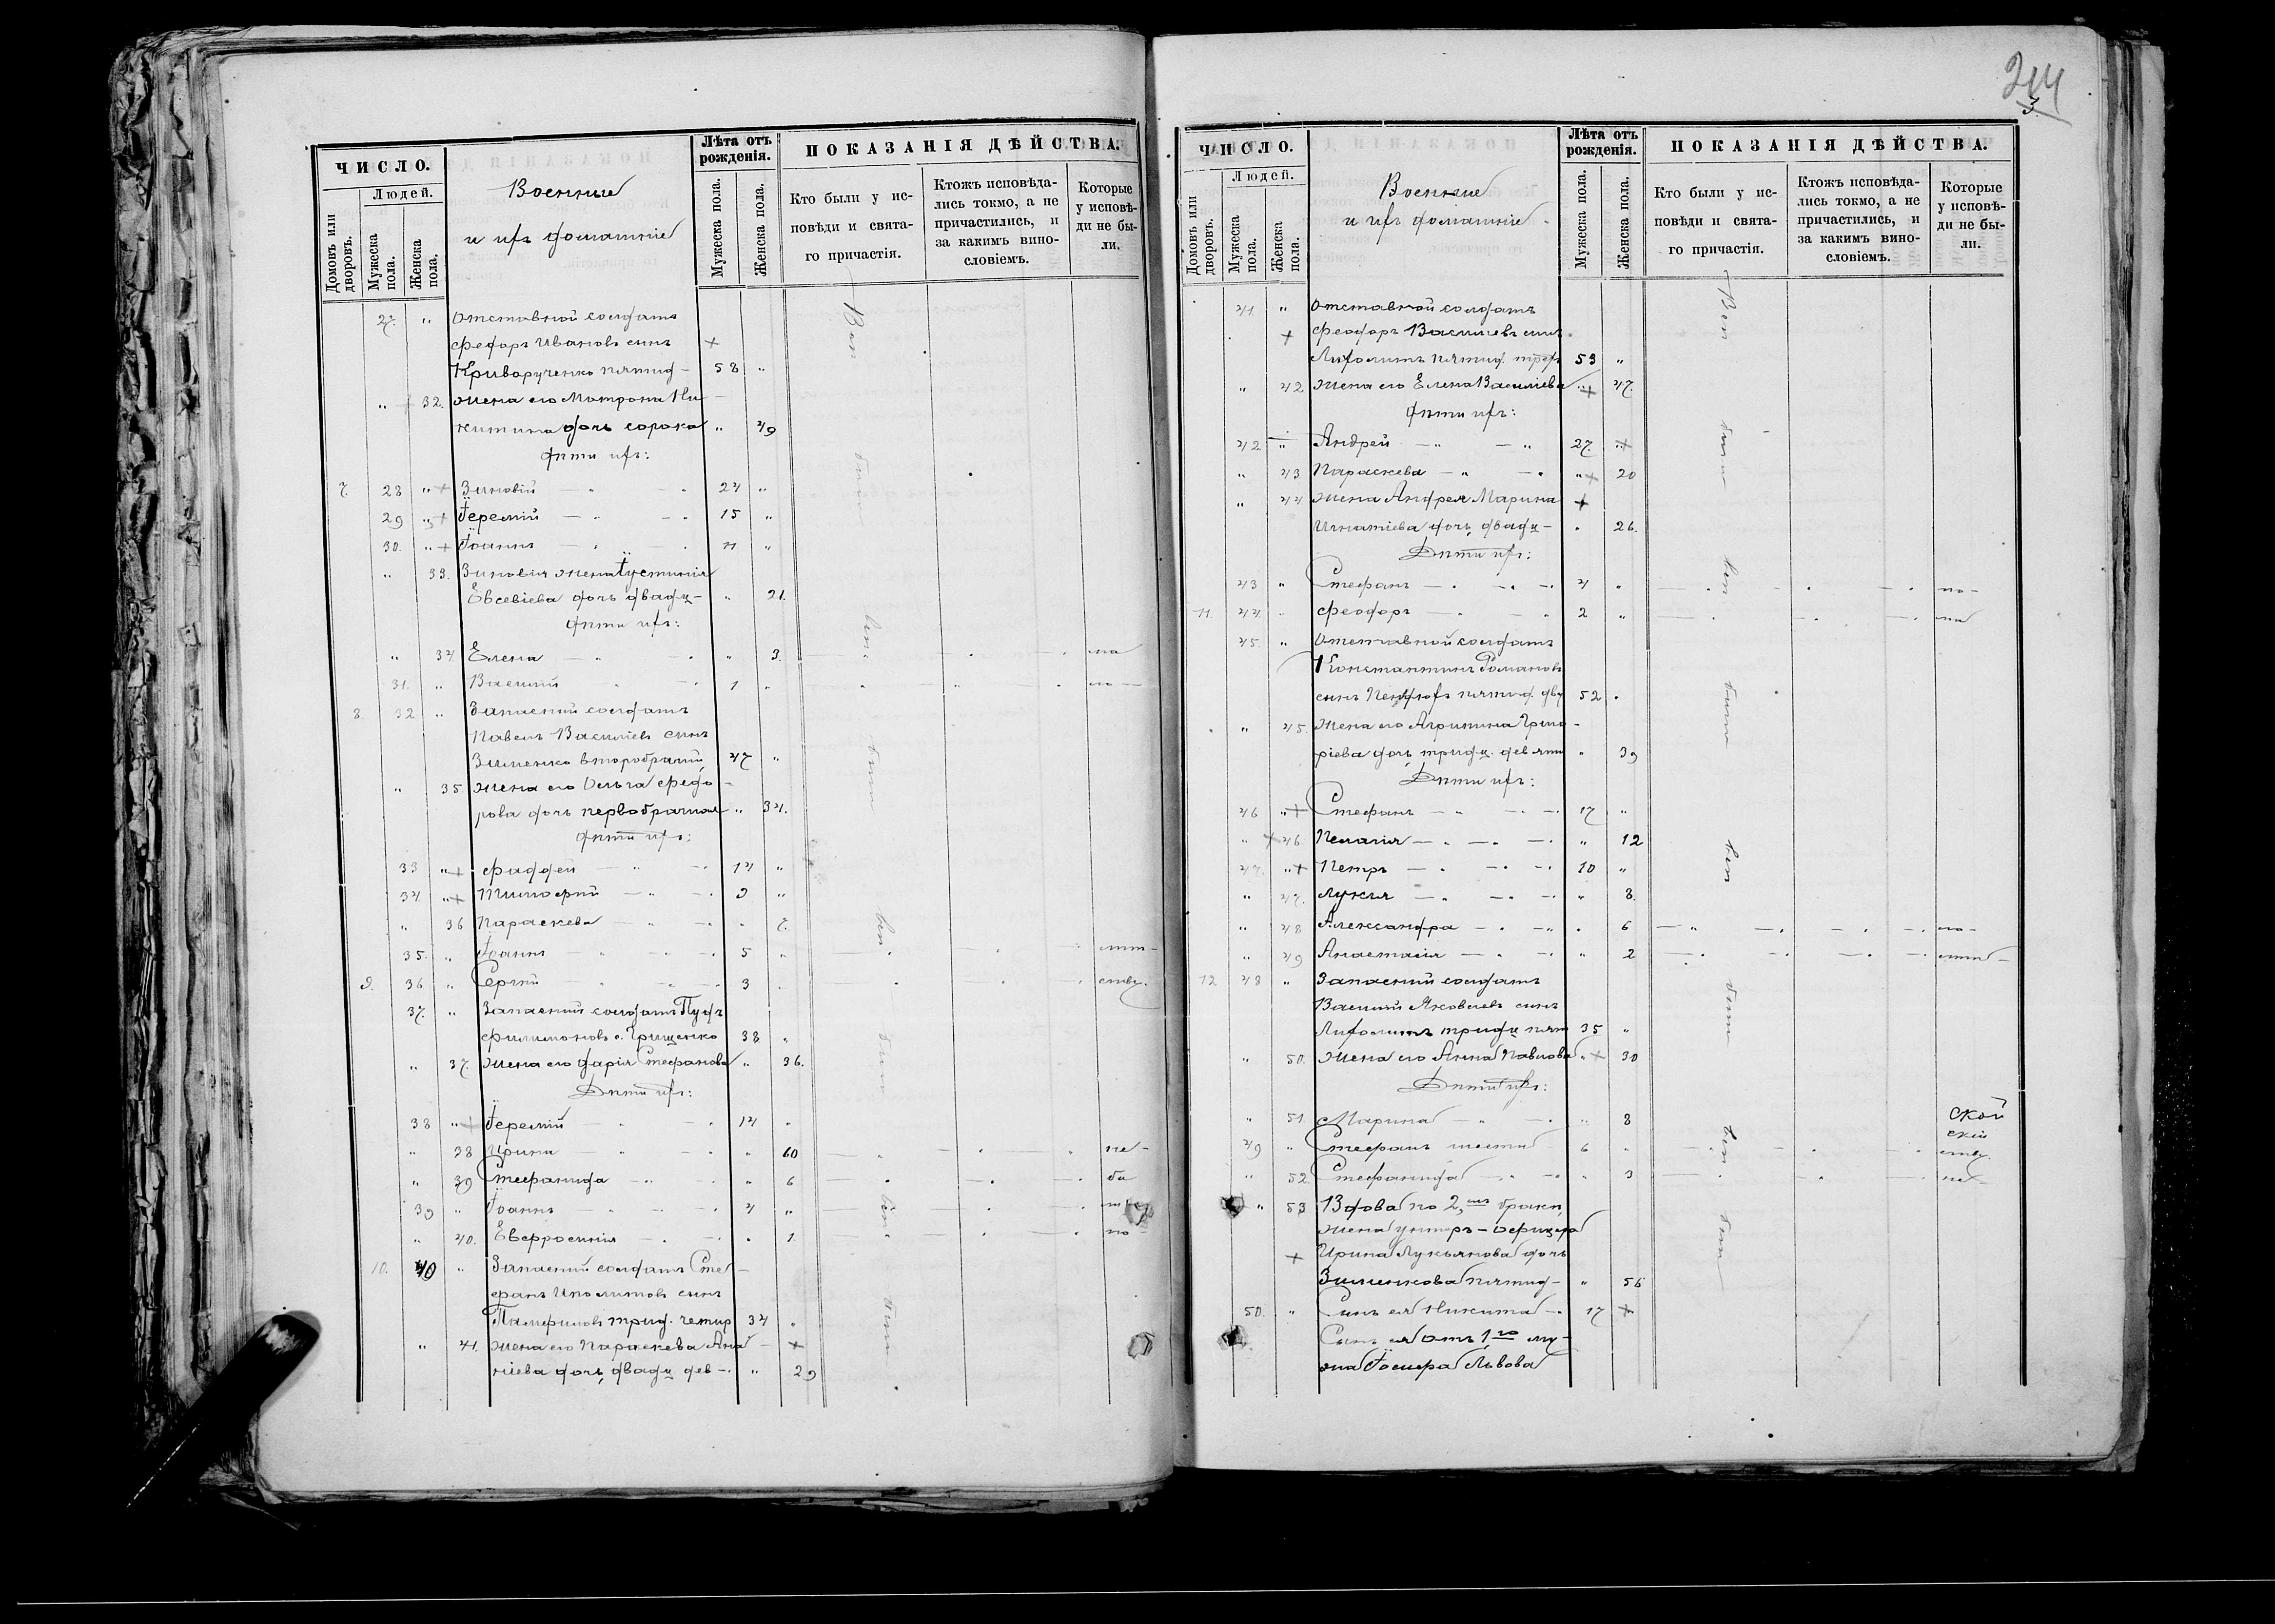 ЧИСЛО.
Людей.
Домовъ или дворовъ.
Мужеска пола.
Женска пола.
Военные
и ихъ домашніе
Лѣта отъ рожденія.
Мужеска пола.
Женска пола.
ПОКАЗАНІЯ ДѢЙСТВА.
Кто были у ис-
повѣди и свята-
го причастія.
Ктожъ исповѣда-
лись токмо, а не
причастились, и
за какимъ вино-
словіемъ.
Которые
у исповѣ-
ди не бы-
ли.
27. " Отставной солдатъ
Федоръ Ивановъ сынъ
Криворученко пятид- 58 "
" 32. Жена его Матрона Ни-
китина дочь сорока " 49
Дѣти ихъ:
7. 28 " Зиновій 24 "
29 " Іеремій 15 "
30. " Іоаннъ 11 "
" 33. Зиновія жена Іустинія
Евсевіева дочь двадц- " 21.
Дѣти ихъ:
" 34 Елена " 3. ма
31. " Василий 1 " ло-
8. 32 " Запасный солдатъ
Павелъ Василіевъ сынъ
Зименко второбрачній 47 "
" 35 Жена его Ольга Федо-
рова дочь первобрачная " 34.
Дѣти ихъ:
33 " Фаддей 14 "
34 " Тимофій 9 "
" 36 Параскева " 7.
35. " Іоаннъ 5 " лѣт-
9. 36 " Сергій 3 ству.
37. " Запасный солдатъ
Филимоновъ с. Грищенко 38 "
" 37. Жена его Дарія Стефанова " 36.
Дѣти ихъ:
38 " Іеремій 14 "
" 38 Ирина " 60 не-
" 39 Стефанида " 6
39 " Іоаннъ 4 "
" 40. Евфросинія " 1. ло-
10. 40 " Запасный солдатъ Сте-
фанъ Иполитовъ сынъ
Памфиловъ трид. четыр 34 "
" 41. Жена его Параскева Ана-
ніева дочь, двадц дев- " 29
Вси были вси были вси были вси были
244
3.
ЧИСЛО.
Людей.
Домовъ или дворовъ.
Мужеска пола.
Женска пола.
Военные
и ихъ домашніе
Лѣта отъ рожденія.
Мужеска пола.
Женска пола.
ПОКАЗАНІЯ ДѢЙСТВА.
Кто были у ис-
повѣди и свята-
го причастія.
Ктожъ исповѣда-
лись токмо, а не
причастились, и
за какимъ вино-
словіемъ.
Которые
у исповѣ-
ди не бы-
ли.
41. " Отставной солдатъ
Феодоръ Василіевъ сынъ
пятид. 53 "
" 42 Жена его Елена Василіева " 47.
Дѣти ихъ:
42 " Андрей 27. "
" 43 Параскева " 20
" 44 Жена Андрея Марина
Игнатіева дочь, двадц- " 26.
Дѣти ихъ:
43 " Стефанъ 4 "
11. 44. " Феодоръ 2 "
45. " Отставной солдатъ
Константинъ Романовъ
сынъ пятид. дву 52 "
" 45. Жена его Агрипина Григо-
ріева дочь, тридц. девяти " 39
Дѣти ихъ:
46 " Стефанъ 17 "
" 46. Пелагія " 12
47. " Петръ 10 "
" 47. Лукія " 8.
" 48 Александра " 6 ло-
" 49 Анастасія " 2 лѣт-
12 48 " Запасный солдатъ
Василий Яковлевъ сынъ
тридц пят 35 "
" 50. Жена его Анна Павлова " 30
Дѣти ихъ:
" 51. Марина " 8
49 " Стефанъ шести 6 " ству.
" 52. Стефанида " 3
ской
" 53 Вдова по 2мъ бракѣ,
жена унтеръ-офицера
Ирина Лукьянова дочь
Зименкова пятид- " 56
50. " Сынъ ея Никита 17
Сынъ ея отъ 1го му-
жа Іосифа Львова
Вси были вси были вси были вси были